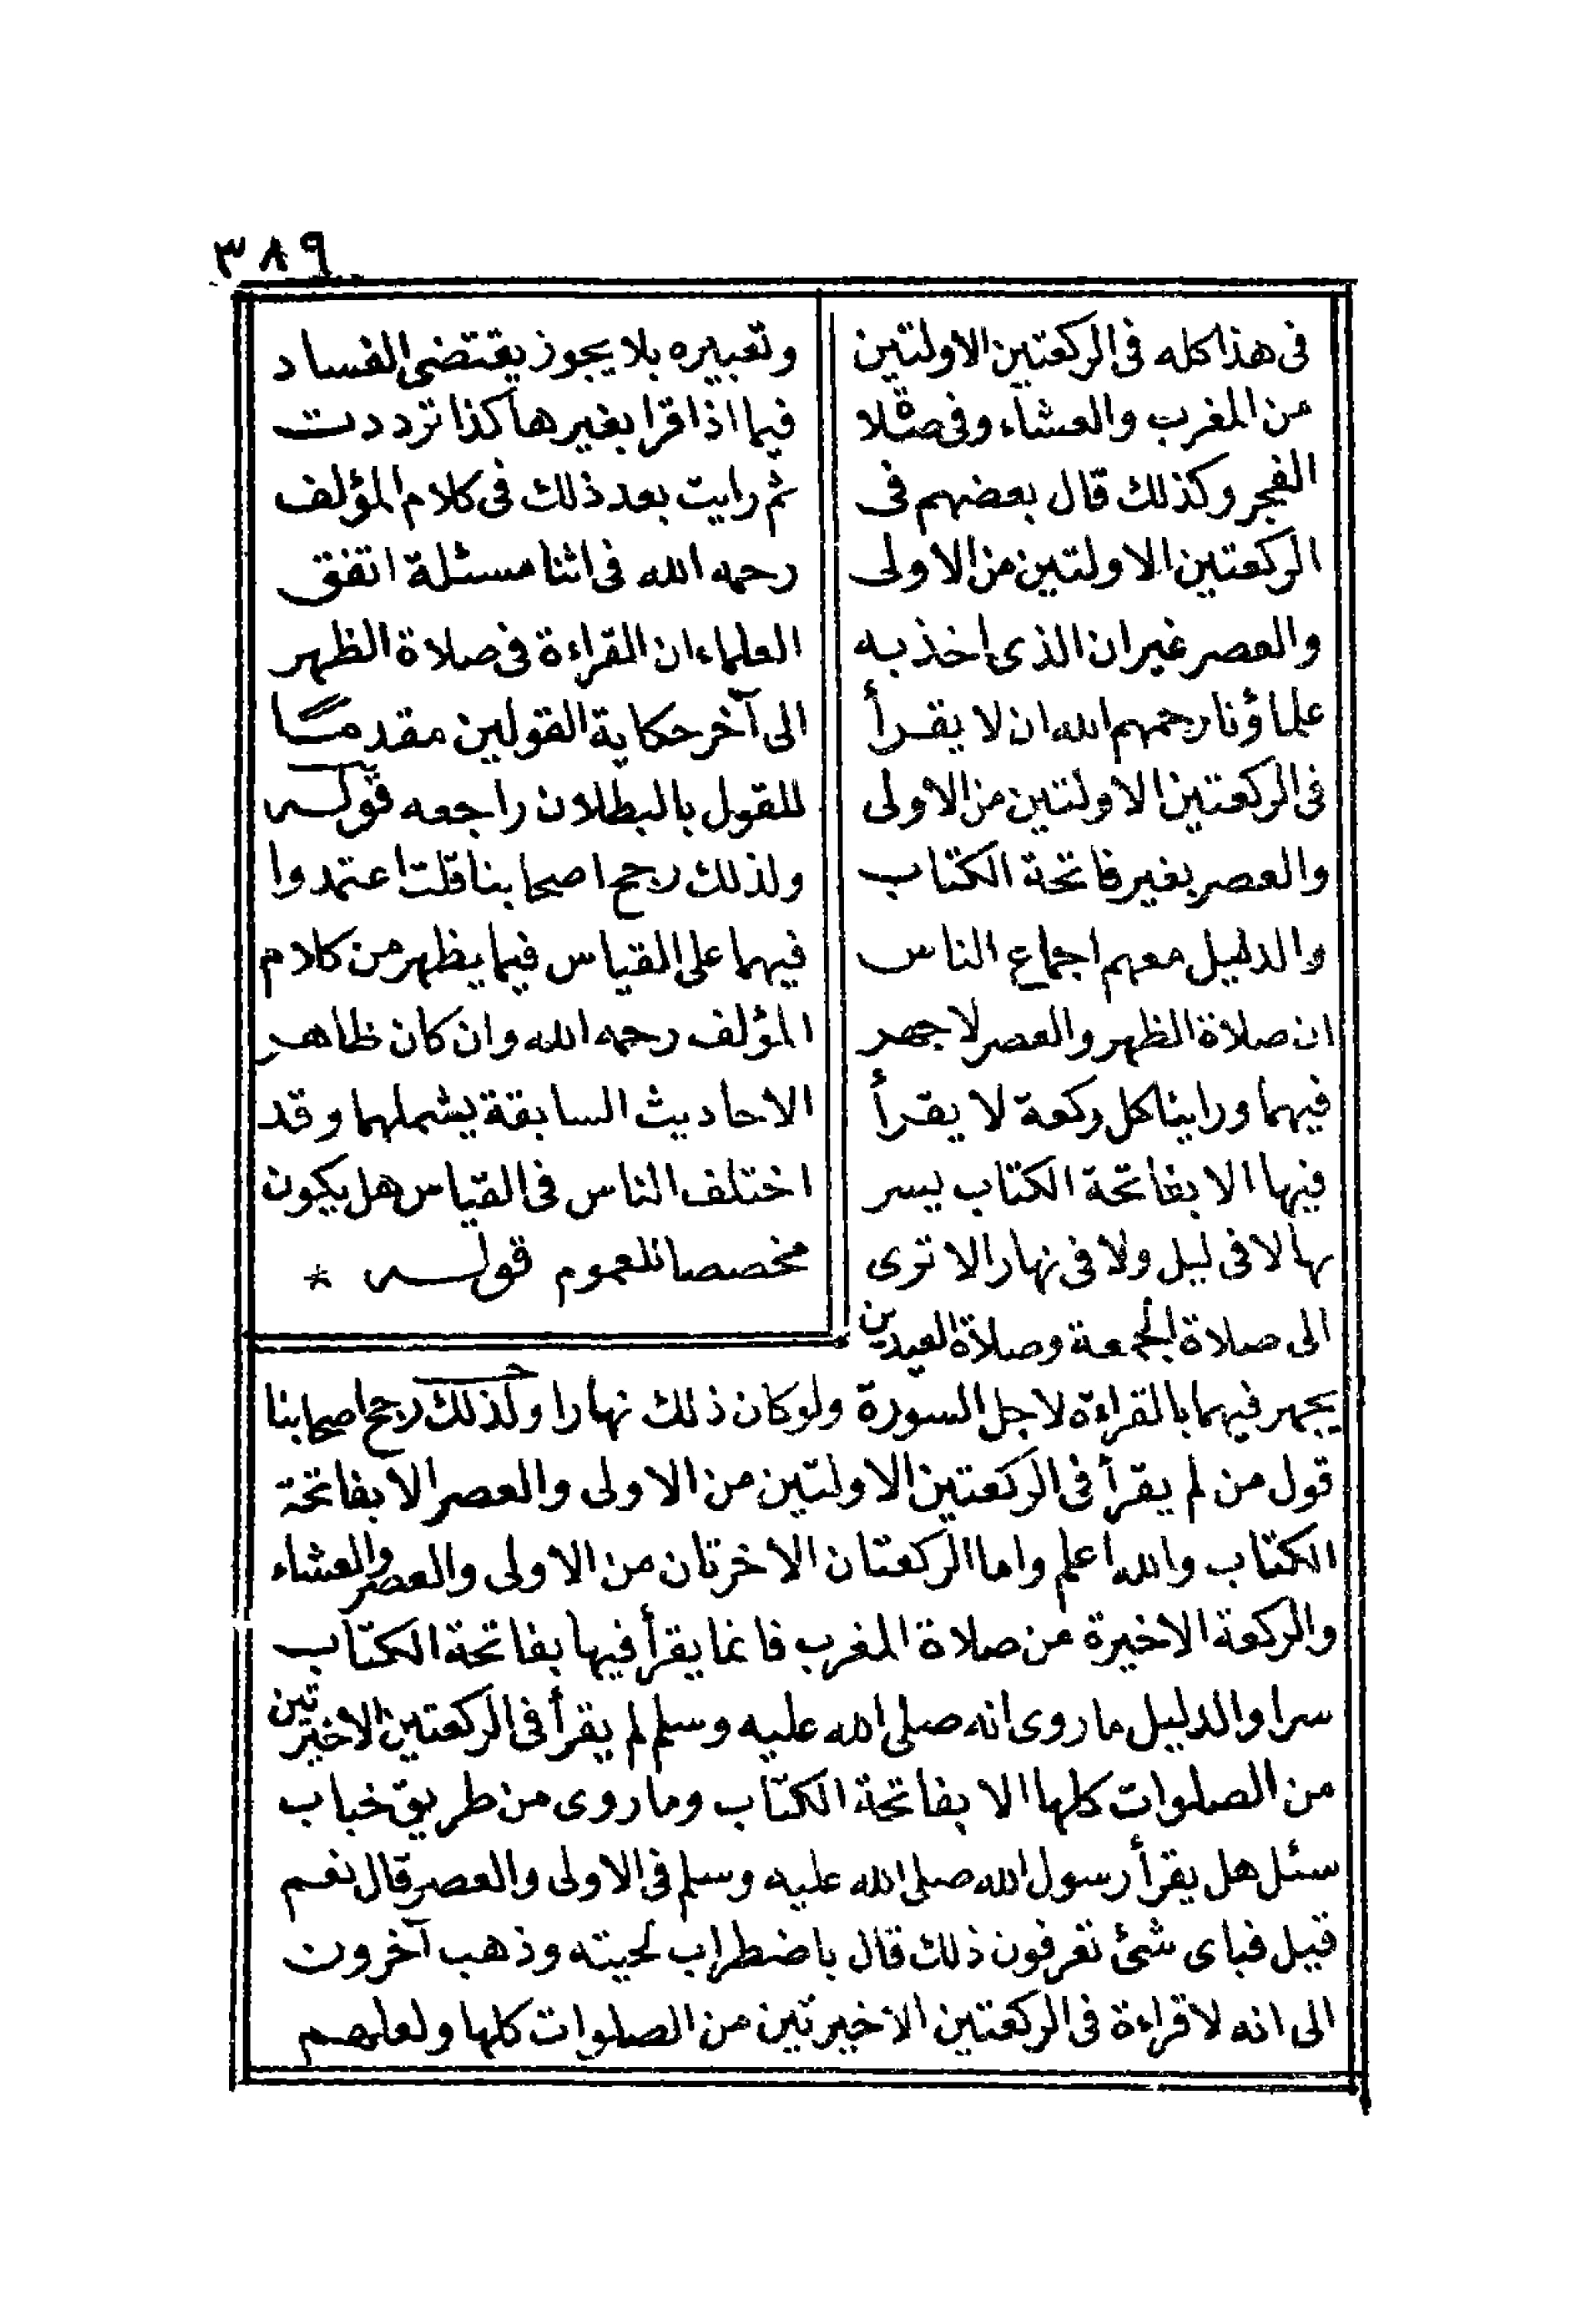 ٣٨٩
فى هذا كله فى الركعتين الاولتين
من المغرب والعشاء وفى صلاة
الفجر وكذلك قال بعضهم فى
الركعتين الاولتين من الاولى
والعصر غير ان الذى اخذ به
علماؤنا رحمهم الله ان لا يقرأ
فى الركعتين الاولتين من الاولى
والعصر بغير فاتحة الكتاب
والدليل معهم اجماع الناس
ان صلاة الظهر والعصر لا جهر
فيهما وراينا كل ركعة لا يقرأ
فيها الا بفاتحة الكتاب يسر
بها لا فى ليل ولا فى نهار الا ترى
الى صلاة الجمعة وصلاة العيدين
وتعبيره بلا يجوز يقتضى الفساد
فيما اذا قرا بغيرها كذا ترددت
ثم رايت بعد ذلك فى كلام المؤلف
رحمه الله فى اثنا مسئلة اتفق
العلماء ان القراءة فى صلاة الظهر
الى آخر حكاية القولين مقدما
للقول بالبطلان راجعه قوله
ولذلك رجح اصحابنا قلت اعتمدوا
فيهما على القياس فيما يظهر من كلام
المؤلف رحمه الله وان كان ظاهر
الاحاديث السابقة يشملهما وقد
اختلف الناس فى القياس هل يكون
مخصصا للعموم قوله *
يجهر فيهما بالقراءة لاجل السورة ولو كان ذلك نهارا ولذلك رجح اصحابنا
قول من لم يقرأ فى الركعتين الاولتين من الاولى والعصر الا بفاتحة
الكتاب والله اعلم واما الركعتان الاخرتان من الاولى والعصر والعشاء
والركعة الاخيرة من صلاة المغرب فانما يقرأ فيها بفاتحة الكتاب
سرا والدليل ما روى انه صلى الله عليه وسلم لم يقرأ فى الركعتين الاخيرتين
من الصلوات كلها الا بفاتحة الكتاب وما روى من طريق خباب
سئل هل يقرأ رسول الله صلى الله عليه وسلم فى الاولى والعصر قال نعم
قيل فباى شئ تعرفون ذلك قال باضطراب لحيته وذهب آخرون
الى انه لا قراءة فى الركعتين الاخيرتين من الصلوات كلها ولعلهم